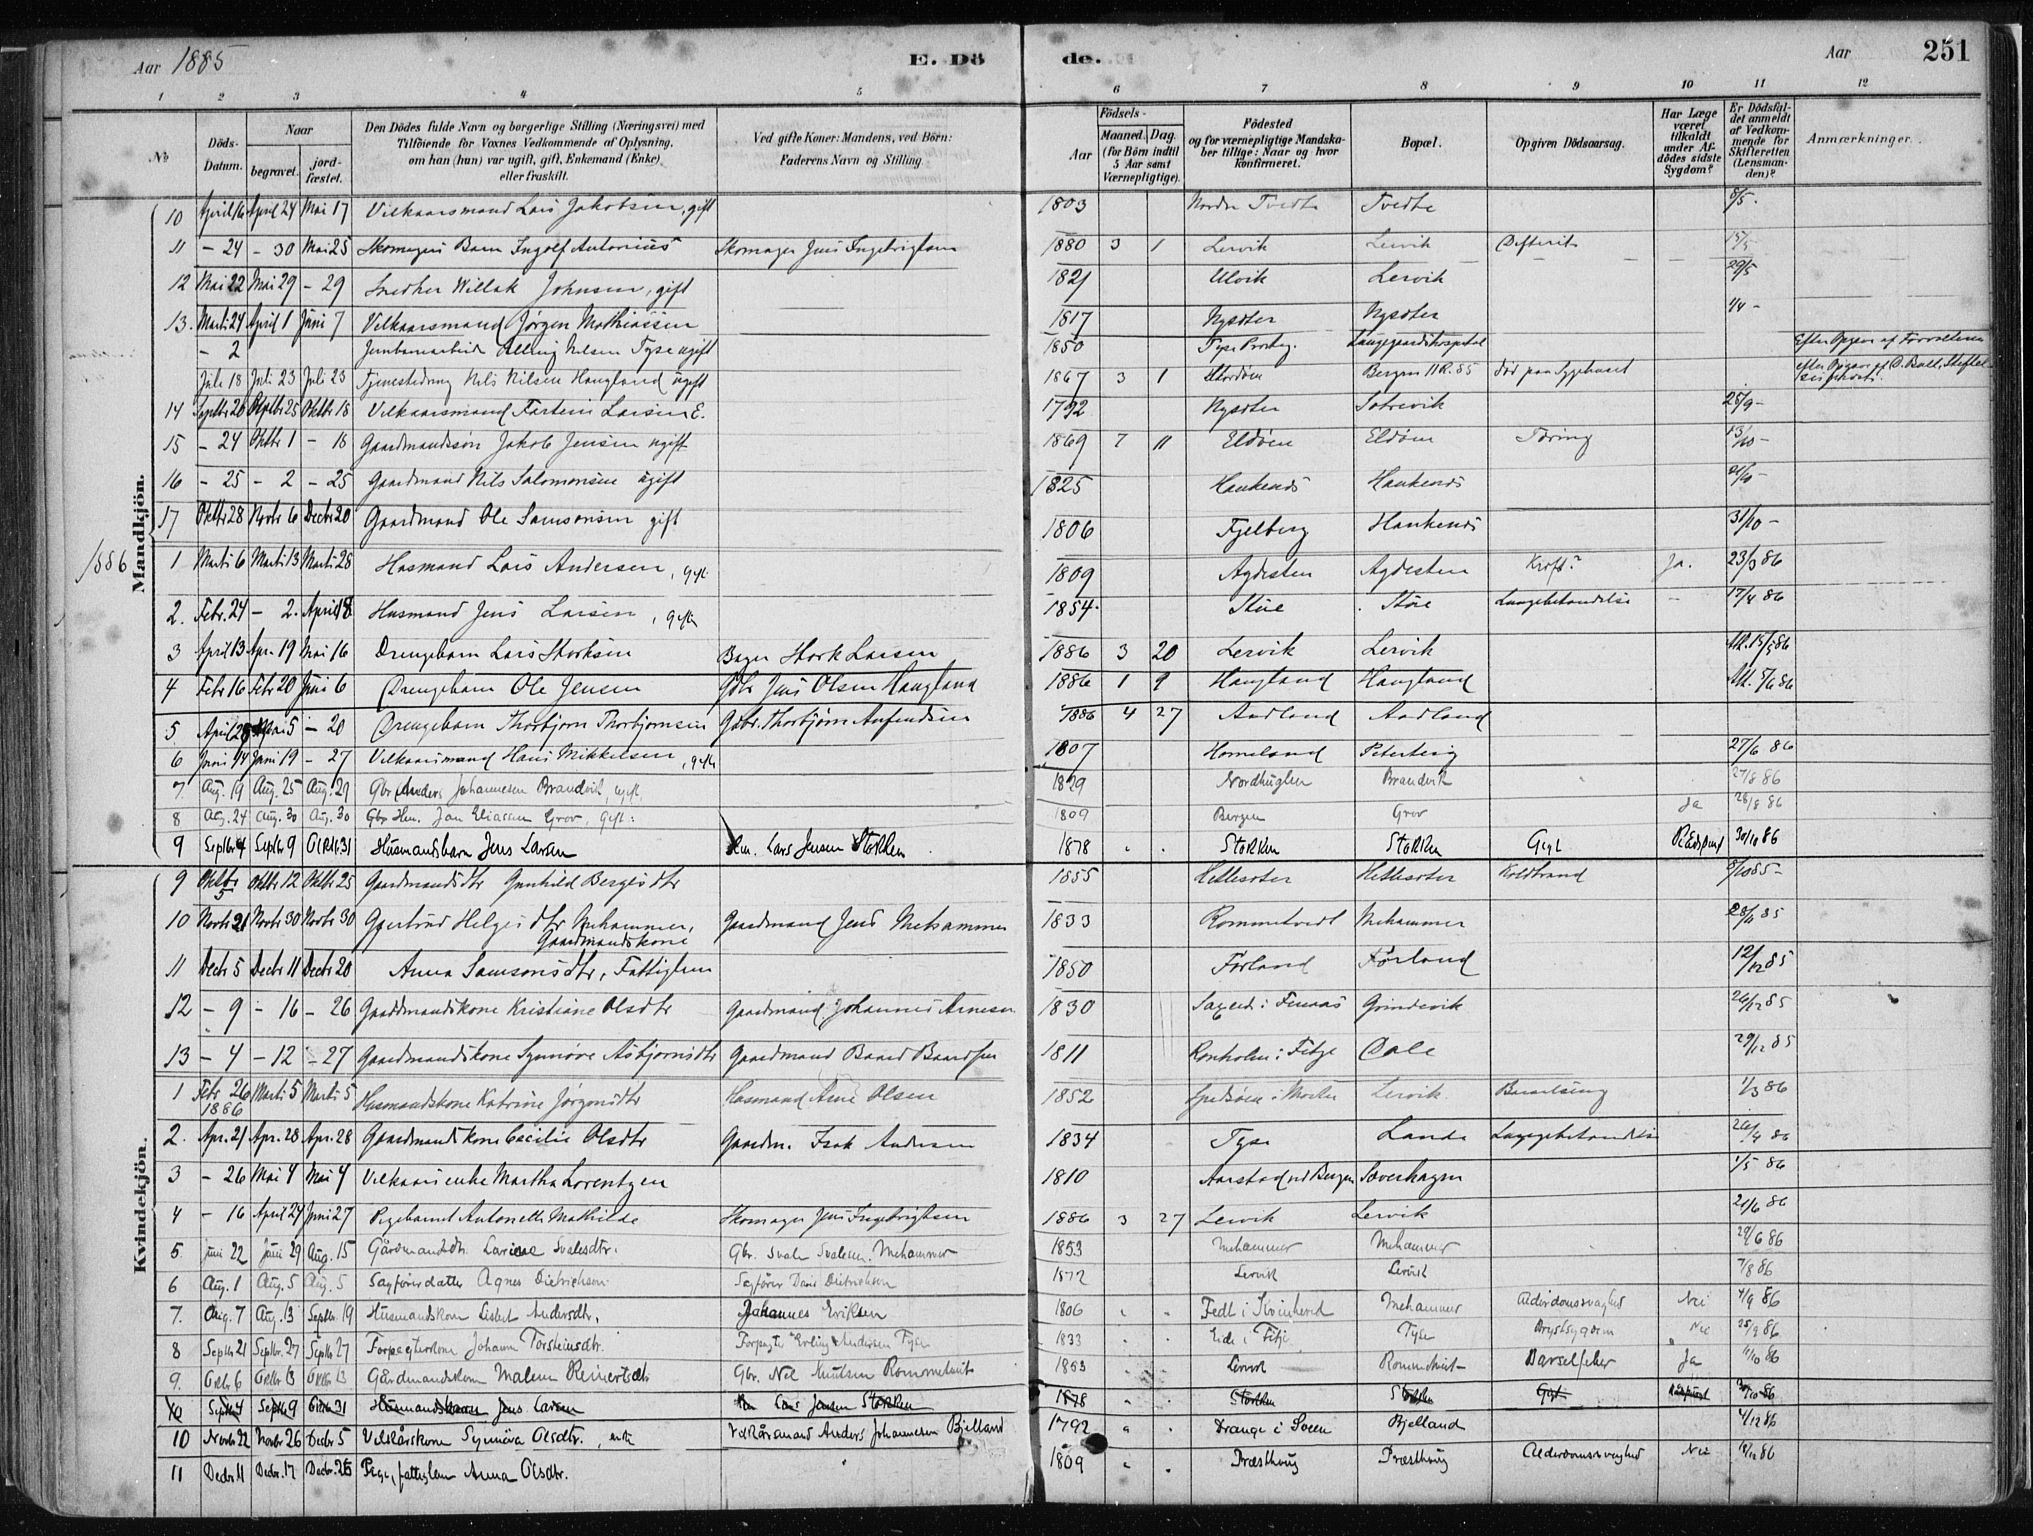 Aar 1885 E. Döde. Aar 251
1 2 3 4 5 6 7 8 9 10 11 12
No
Döds-Datum.
Naar begravet. jordfæstet.
Den Dödes fulde Navn og borgerlige Stilling (Næringsvei) med Tilföiende for Voxnes Vedkommende af Oplysning, om han (hun) var ugift, gift, Enkemand (Enke) eller fraskilt.
Ved gifte Koner: Mandens, ved Börn: Faderens Navn og Stilling.
Födsels-
Aar Maaned. Dag. (for Börn indtil 5 Aar samt Værnepligtige).
Födested og for værnepligtige Mandskaber tillige: Naar og hvor konfirmeret.
Bopæl.
Opgiven Dödsaarsag.
Har Læge været tilkaldt under Afdödes sidste Sygdom?
Er Dödsfaldet anmeldt af Vedkommende for Skifteretten (Lensmanden)?
Anmærkninger.
Mandkjön.
10 April 16 April 24 Mai 17 Vilkaarsmand Lars Jakobsen, gift 1803 Nordre Tvedte Tvedte 8/5 -
11 - 24 - 30 Mai 25 Skomagers Barn Ingolf Antonius Skomager Jens Ingebrigtsen 1880 3 1 Lervik Lervik Difterit 15/5
12 Mai 22 Mai 29 - 29 Snedker Willak Johnsen, gift 1821 Ulvik Lervik 29/5
13. Marti 24 April 1 Juni 7 Vilkaarsmand Jørgen Mathiassen 1817 Nysæter Nysæter 1/4 -
- 2 Nilsen Tyse ugift 1850 Tyse Lungegaardshospital Efter Opgave af
Juli 18 Juli 23 Juli 23 Tjenestedreng Nils Nilsen Haugland ugift 1867 3 1 Stordøen Bergen 11 R. 85 død paa Sygehuset efter Opgave af
14 Septbr 20 Septbr 25 Oktbr 18 Vilkaarsmand Torstein Larsen E. 1792 Nysæter Sotrevik 25/9 -
15 - 24 Oktbr 1 - 18 Gaardmandssøn Jakob Jensen ugift 1869 7 11 Eldøen Eldøen Tæring 13/10 -
16 - 25 - 2 - 25 Gaardmand Nils Salomonsen ugift 1825 Haukenes Haukenes
17 Oktbr 28 Novbr 6 Decbr 20 Gaardmand Ole Samsonsen gift 1806 Fjelberg Haukenes 31/10 -
1886
1 Marti 6 Marti 13 Marti 28 Husmand Lars Andersen, gift 1809 Agdesten Agdesten Kræft? Ja. 23/3 86
2. Febr. 24 - 2. April 18 Husmand Jens Larsen, gift 1854 Støle Støle Lungebetændelse - 17/4 86
3 April 13 Apr. 19 Mai 16 Drengebarn Lars Storksen Bager Stork Larsen 1886 3 20 Lervik Lervik 15/5 86
4 Febr 16 Febr 20 Juni 6 Drengebarn Ole Jensen Gbr Jens Olsen Haugland 1886 1 9 Haugland Haugland 5/6 86
5 April 28 Mai 5 - 20 Drengebarn Thorbjørn Thorbjørnsen Gbr. Thorbjørn Anfindsen 1886 4 27 Aadland Aadland
6 Juni 14 Juni 19 - 27 Vilkaarsmand Hans Mikkelsen, gift 1807 Homeland Petersteig 27/6 86
7. Aug. 19 Aug. 25 Aug. 29 Gbr Anders Johannesen Brandvik, ugift 1829 Nordhuglen Brandvik 27/8 86
8 Aug. 24 Aug. 30 Aug. 30 Gbr Hm. Jan Eliassen Grov, gift: 1809 Bergen Grov Ja 28/8 86
9 Septbr 4 Septbr 9 Oktbr. 31 Husmandsbarn Jens Larsen Hm. Lars Jensen Stokken. 1878 " . Stokken Stokken Gigt Rådspurt 30/10 86
Kvindekjön.
9 Oktbr 5 Oktbr 12 Oktbr 25 Gaardmandsdtr Gunhild Bergesdtr 1855 Hettesæter Hettesæter Koldbrand 9/10 85 -
10 Novbr 21 Novbr 30 Novbr 30 Gjertrud Helgesdtr Mehammer, Gaardmandskone Gaardmand Jens Mehammer 1833 Rommetvedt Mehammer 28/11 85
11 Decbr 5 Decbr 11 Decbr 20 Anna Samsonsdtr, Fattiglem 1850 Førland Førland 12/12 85
12 - 9 - 16 - 26 Gaardmandskone Kristiane Olsdtr Gaardmand Johannes Arnesen 1830 i Finnaas Grindevik 26/12 85
13 - 4 - 12 - 27 Gaardmandskone Synnøve Asbjørnsdtr Gaardmand Baard Baardsen 1811 Rønholm i Fitje Dale 29/12 85
1 Febr 26 1886 Marti 5 Marti 5 Husmandskone Katrine Jørgensdtr Husmand Arne Olsen 1852 Spidsøen i Moster Lervik Barselseng 1/3 86
2. Apr. 21 Apr. 28 Apr. 28 Gaardmandskone Cecilie Olsdtr Gaardm. Isak Andersen 1834 Tyse Landa Lungebetændelse 26/4 86
3 - 26 Mai 4 Mai 4 Vilkaarsenke Martha Lorentzen 1810 Aarstad ved Bergen Sæverhagen 1/5 86
4 - 16 April 24 Juni 27 Pigebarnet Antonette Mathilde Skomager Jens Ingebrigtsen 1886 3 27 Lervik Lervik 21/6 86
5 Juni 22 Juni 29 Aug. 15 Gårdmandsdtr. Larine Svalesdtr. Gbr. Svale Svalesen Mehammer 1853 Mehammer Mehammer 29/6 86
6 Aug. 1 Aug. 5 Aug. 5 Sagførerdatter Agnes Dietrichson Sagfører Dietrichson 1872 Lervik Lervik 7/8 86
7. Aug. 7 Aug. 13 Septbr. 19 Husmandskone Lisbet Andersdtr. Johannes Eriksen 1806 " " Fedt i Kvinherred Mehammer Alderdomssvaghed Nei 4/9 86
8 Septbr 21 Septbr. 27 Septbr 27 Forpagterkone Johanne Torsteinsdtr. Forpagter Erling Andersen Tyse 1833 Eide i Fitje Tyse Brystsygdom Nei 25/9 86
9. Oktbr 6 Oktbr 13 Oktbr 13 Gårdmandskone Malene Reinertsdtr Gbr. Nils Knutsen Rommetveit 1853 Lervik Rommetveit Barselfeber Ja 11/10 86
10 Septbr 4 Septbr 9 Oktbr 31 Husmandsbarn Jens Larsen Hm Lars Jensen Stokken 1878 " Stokken Stokken Gigt Rådspurt 30/10 86
10 Novbr 22 Novbr 26 Decbr 5 Vilkårskone Synnøva Olsdtr., enke Vilkårsmand Anders Johannesen Bjelland 1792 " . Drange i Sveen Bjelland 4/12 86
11 Decbr 11 Decbr. 17 Decbr. 26 Pige, fattiglem Anna Olsdtr. 1809 " . Præsthoug Præsthoug Alderdomssvaghed Nei 18/12 86